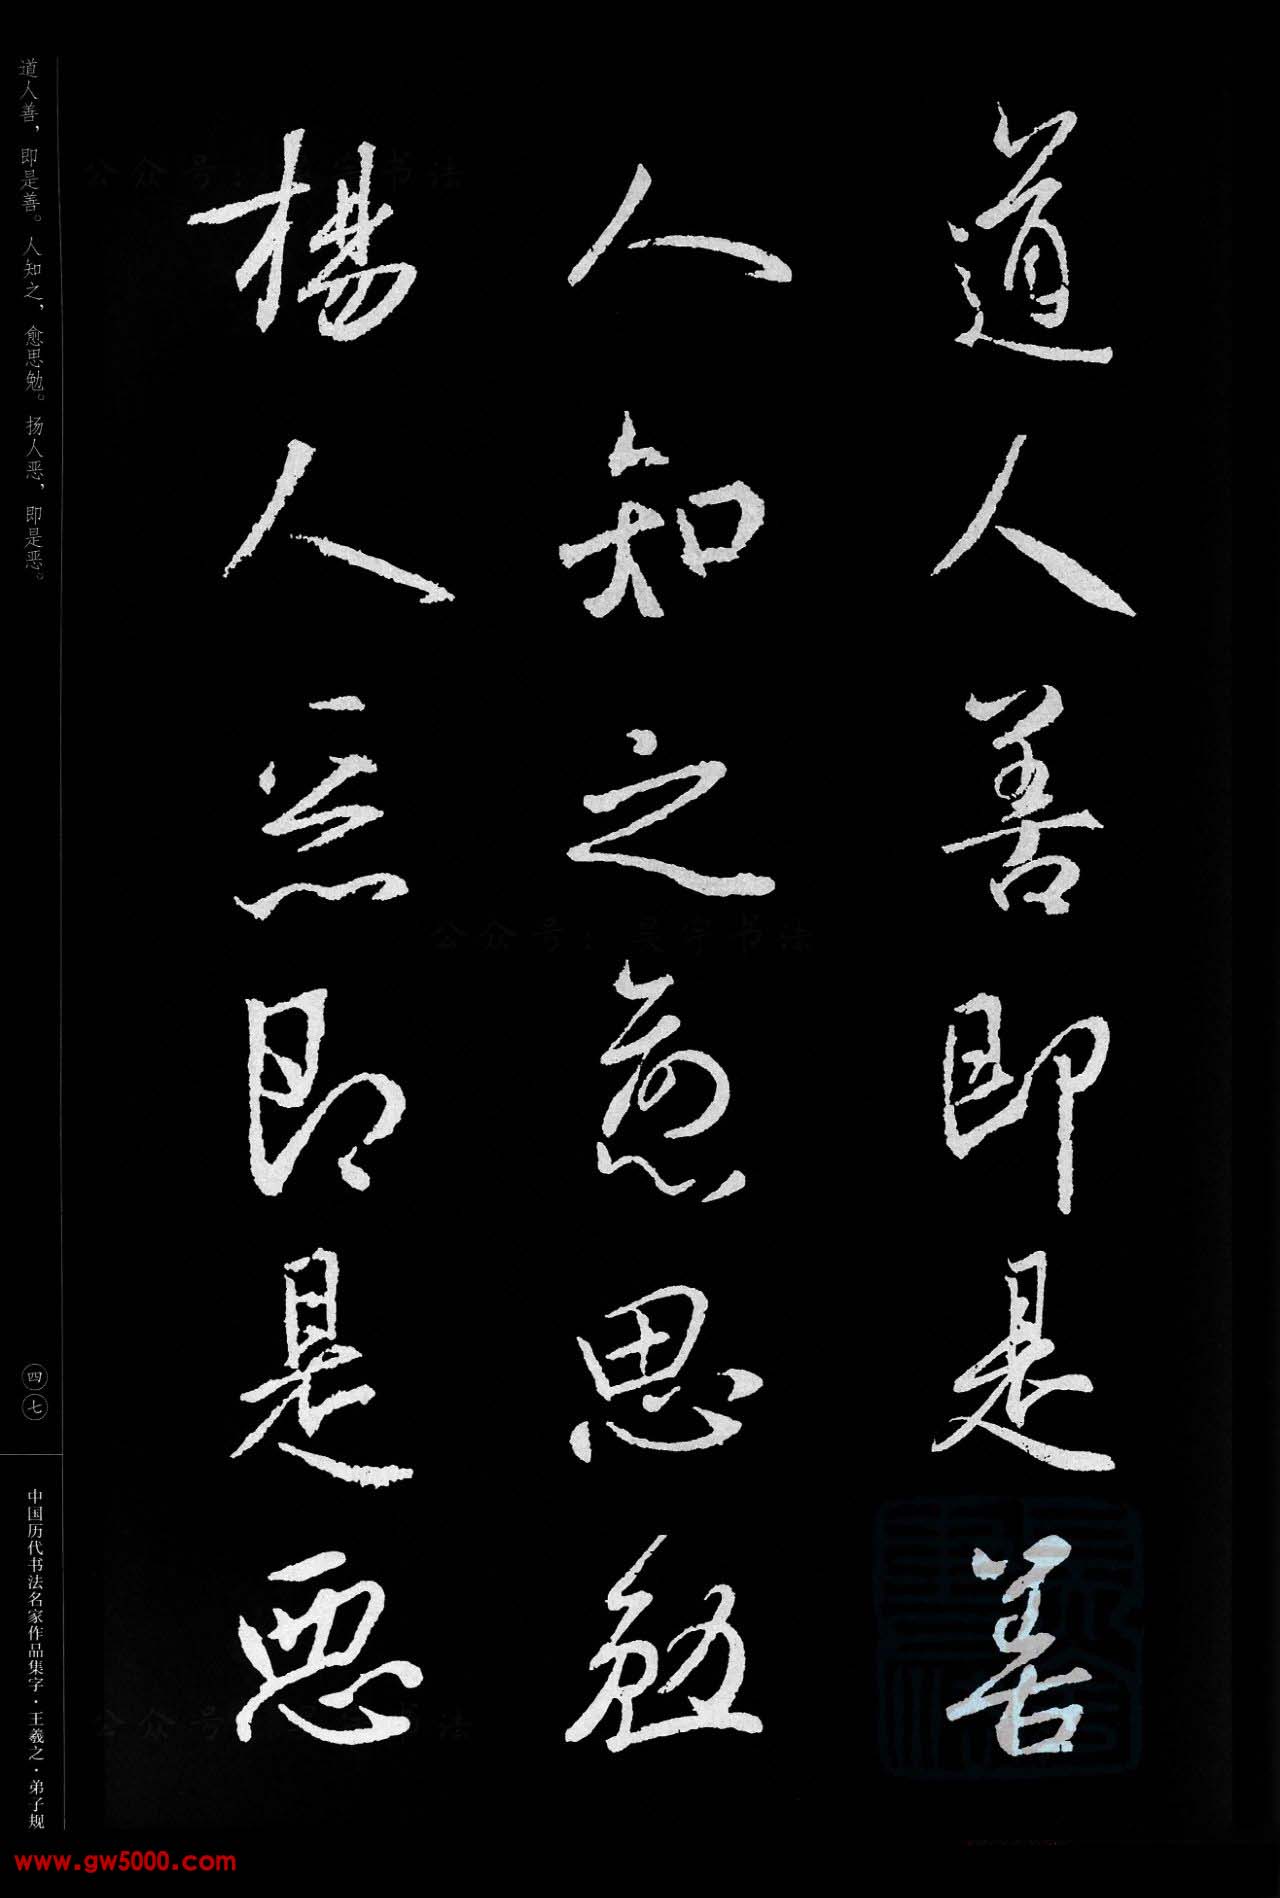 道人善即是善
人知之愈思勉
楊人惡即是惡
道人善，即是善。人知之，愈思勉。扬人恶，即是恶。
四七
中国历代书法名家作品集字·王羲之·弟子规
公众号：吴宇书法
www.gw5000.com